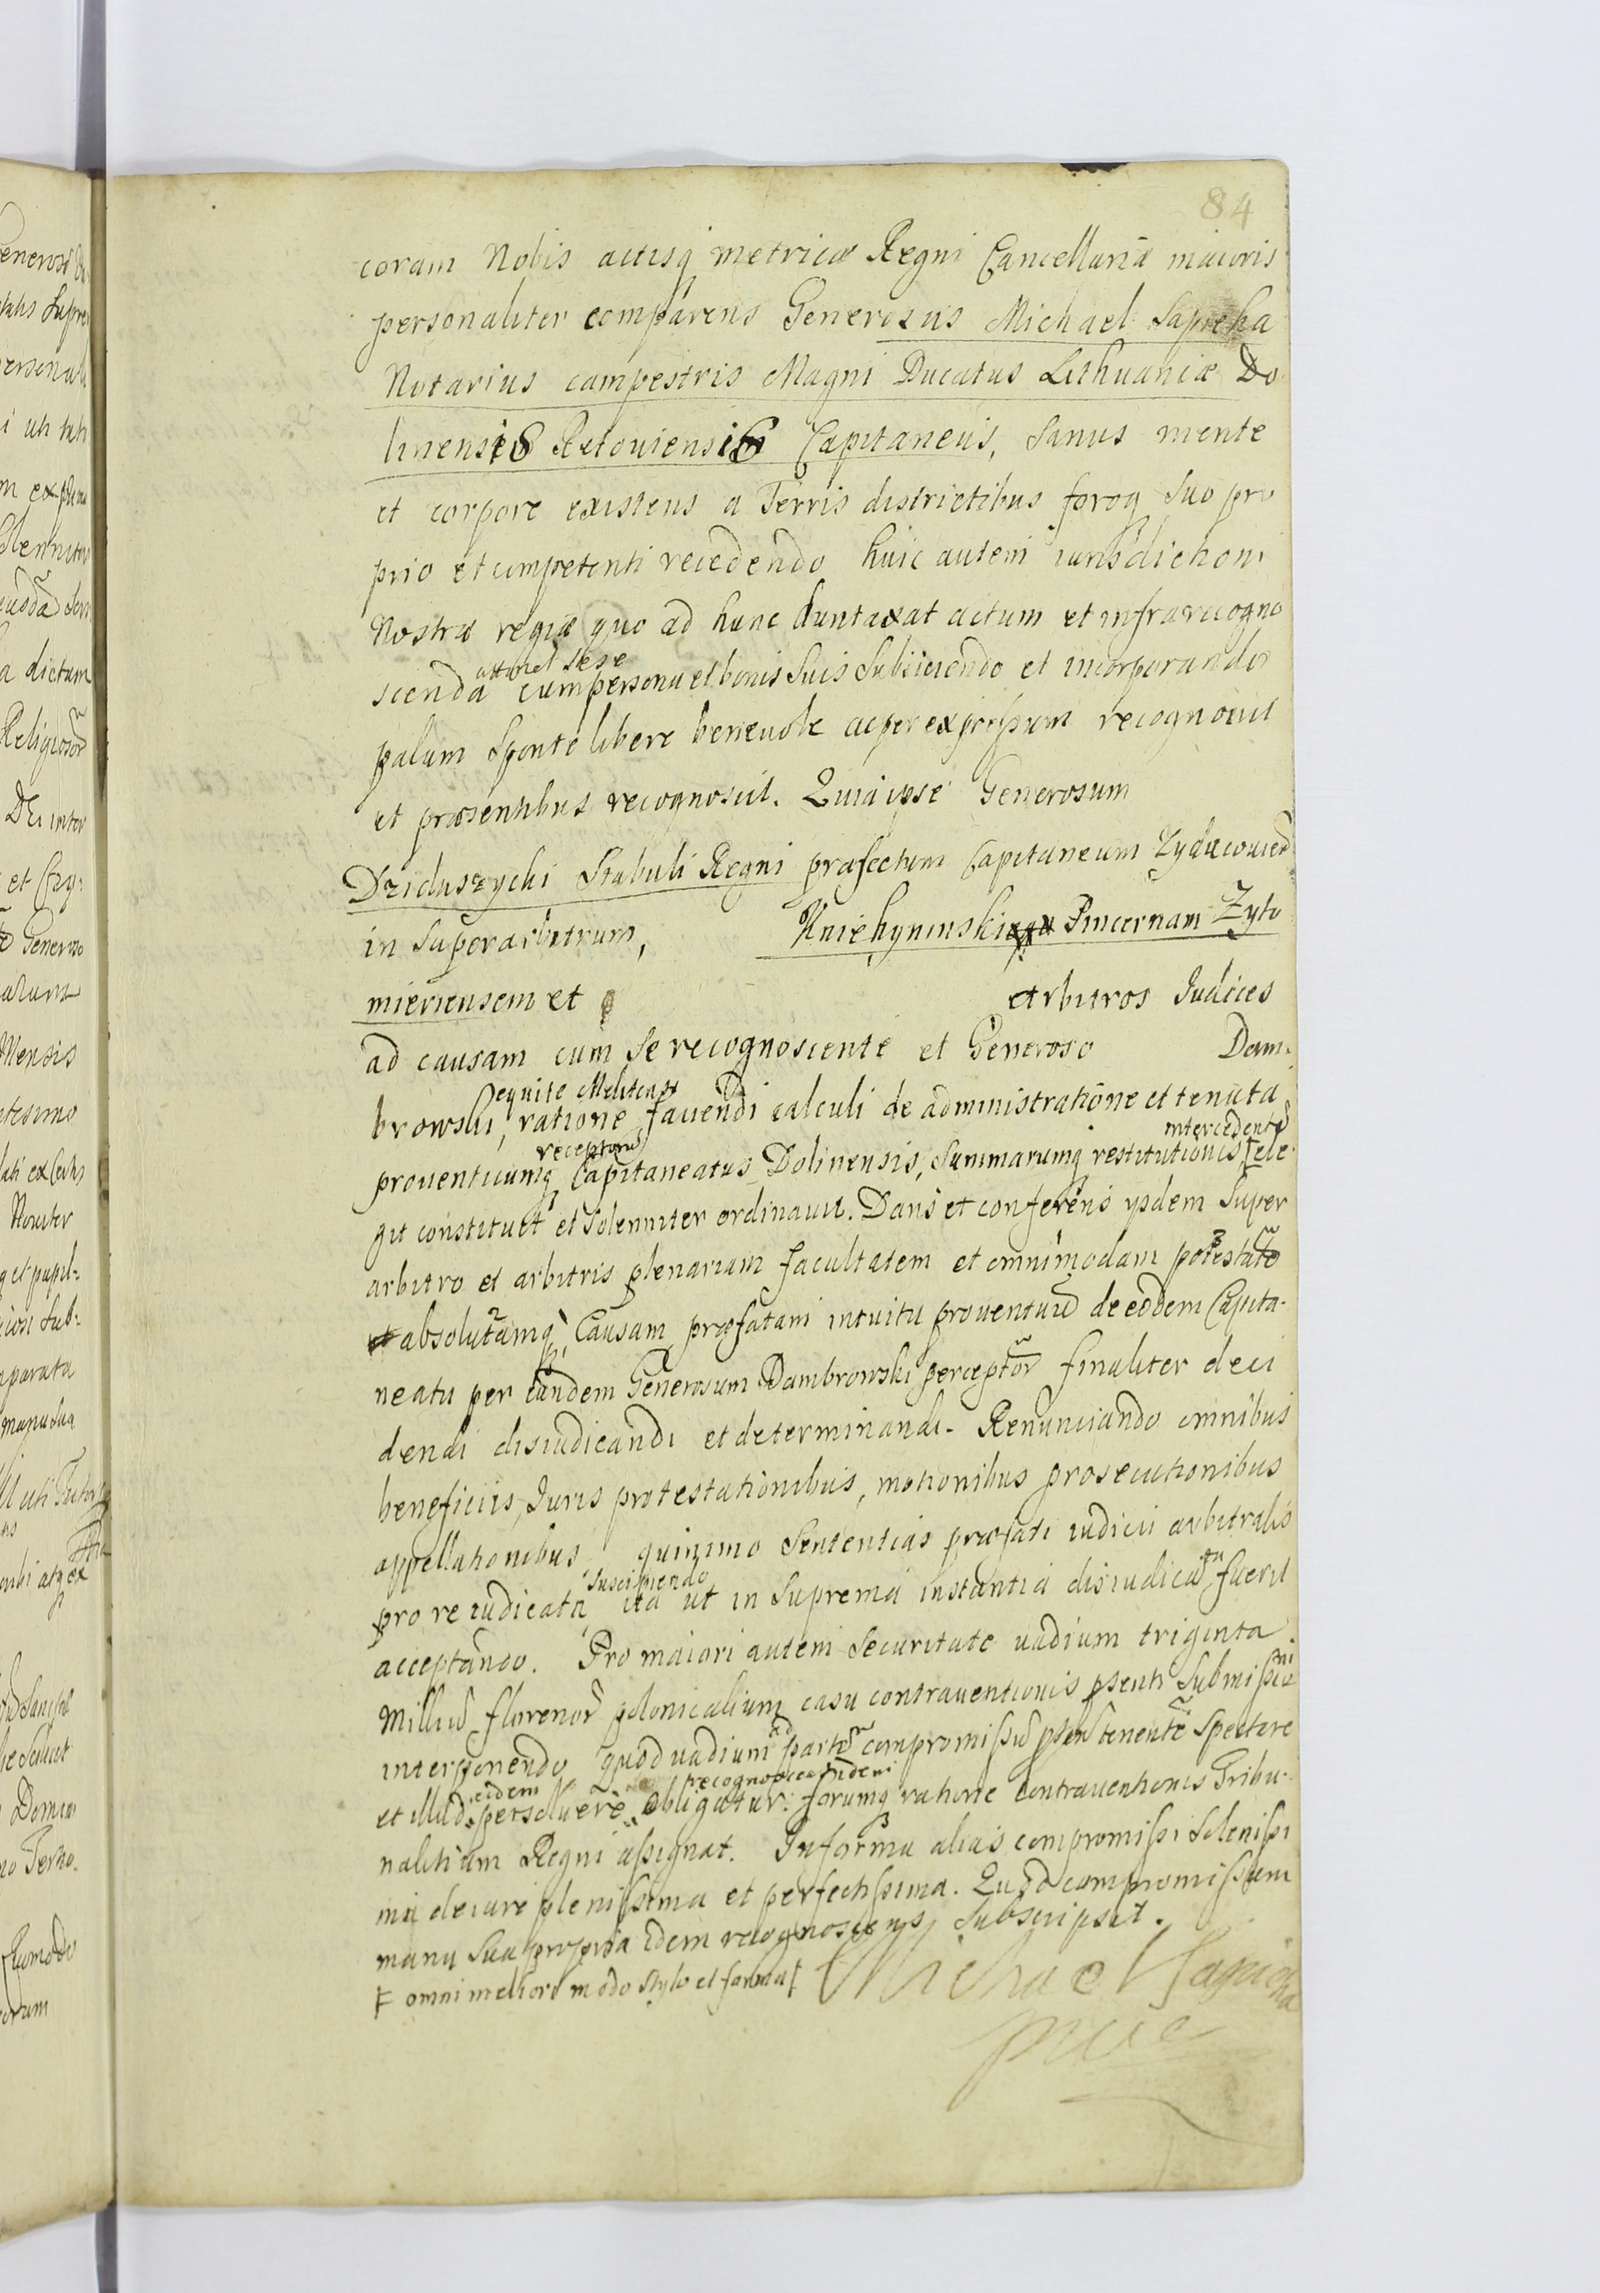 84
coram Nobis actisq metricæ Regni Cancellariæ maioris
personaliter comparens Generosus Michael Sapieha
Notarius campestris Magni Ducatus Lithuaniæ Do
linensis Retoviensis Capitaneus, Sanus mente
et corpore existens a Terris districtibus foroq suo pro
prio et competenti recedendo huic autem iurisdictioni
Nostræ regiæ quo ad hunc duntaxat actum et infra recogno
sese
scenda cum persona et bonis suis subiiciendo et incorporando
palam sponte libere benevole ac per expressum recognovit
et præsentibus recognoscit. Quia ipse Generosum
Dzieduszycki Stabuli Regni præfectum Capitaneum Zydacouien
in Superarbitrum, Kniehyninski Pincernam Zyto
mieriensem et Arbitros Iudices
ad causam cum se recognoscente et Generoso Dam-
equite Melitensi
browski, ratione faciendi calculi de administratione et tenuta
receptorum intercedente
proventuumq Capitaneatus Dolinensis, Summarumq restitutionis ele
git constituit et solenniter ordinavit. Dans et conferens ysdem Super
arbitro et arbitris plenariam facultatem et omnimodam potestate
absolutamq, Causam præfatam intuitu proventuũ de eodem Capita-
neatu per eundem Generosum Dambrowski perceptor finaliter deci
dendi disiudicandi et determinandi. Renunciando omnibus
beneficiis, Iuris protestationibus, motionibus prosecutionibus
appellationibus, quinimo Sententias præfati iudicii arbitralis
suscipiendo
pro re iudicata ita ut in suprema instantia disiudicatu fuerit
acceptando. Pro maiori autem securitate vadium triginta
Milliũ florenor polonicalium casu contraventionis psenti Submissioni
interponendo quod vadium ad parte compromissũ psens tenente spectare
eidem recognoscens
et illud persolvere obligatur. forumq ratione contraventionis Tribu-
nalitium Regni assignat. In forma alias compromissi solenissi
ma de iure plenissima et perfectissima. Quod compromissum
manu sua propria idem recognoscens subscripsit.
omni meliori modo stylo et forma
Michael Sapieha